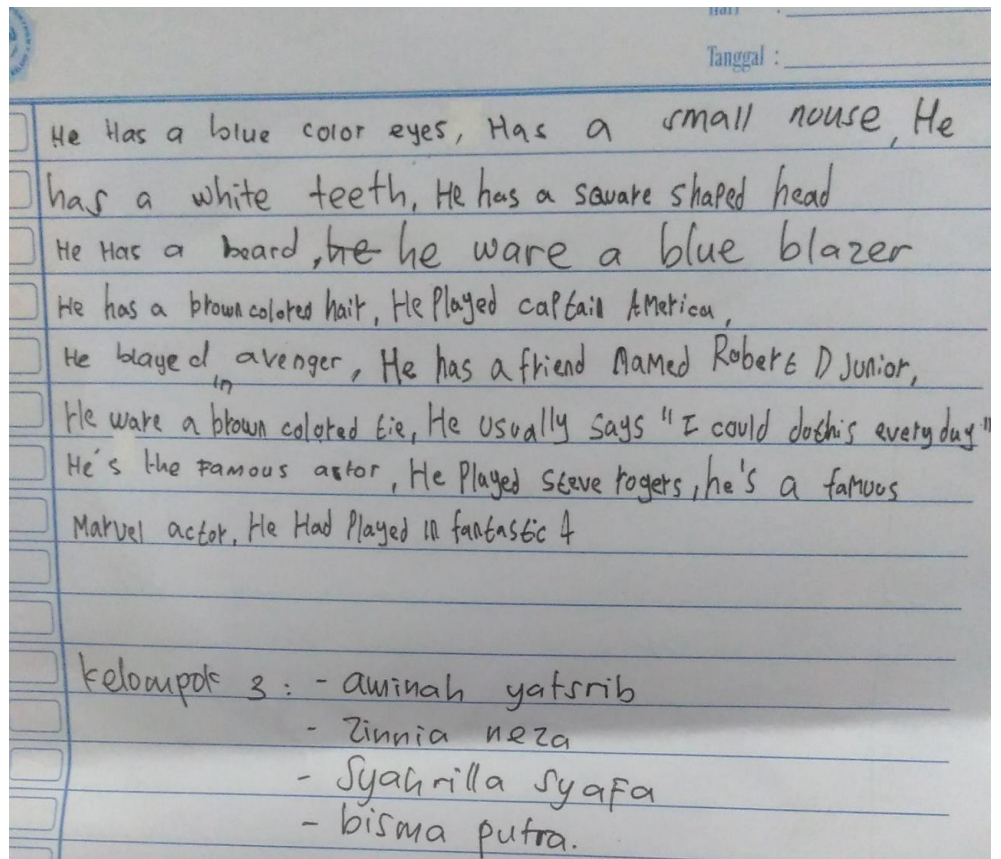 Hari :
Tanggal :
He Has a blue color eyes, Has a small nouse, He
has a white teeth, He has a square shaped head
He Has a beard, he he ware a blue blazer
He has a brown colored hair, He Played captain America,
He blayed in avenger, He has a friend Named Robert D Junior,
He ware a brown colored tie, He usually says "I could dothis every day"
He's the Famous astor, He Played Steve rogers, he's a famuos
Marvel actor, He Had Played in fantastic 4
kelompok 3 : - aminah yatsrib
- Zinnia neza
- Syahrilla syaFa
- bisma putra.